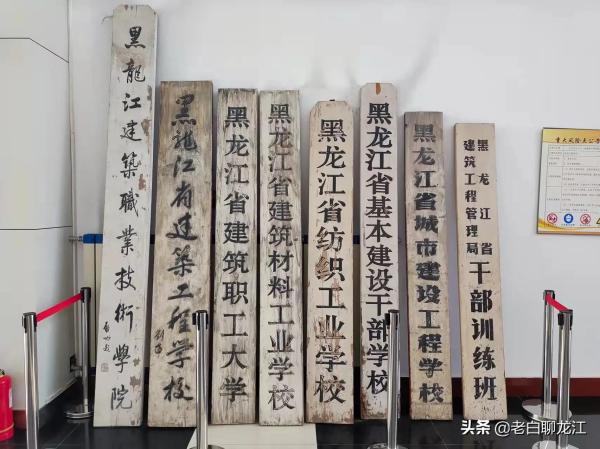 黑龍江建築職業技術學院
啟功題
黑龙江省建築工程学校
黑龙江省建筑职工大学
黑龙江省建筑材料工业学校
黑龙江省纺织工业学校
黑龙江省基本建设干部学校
黑龙江省城市建设工程学校
黑龙江省
建筑工程管理局
干部训练班
头条 @老白聊龙江